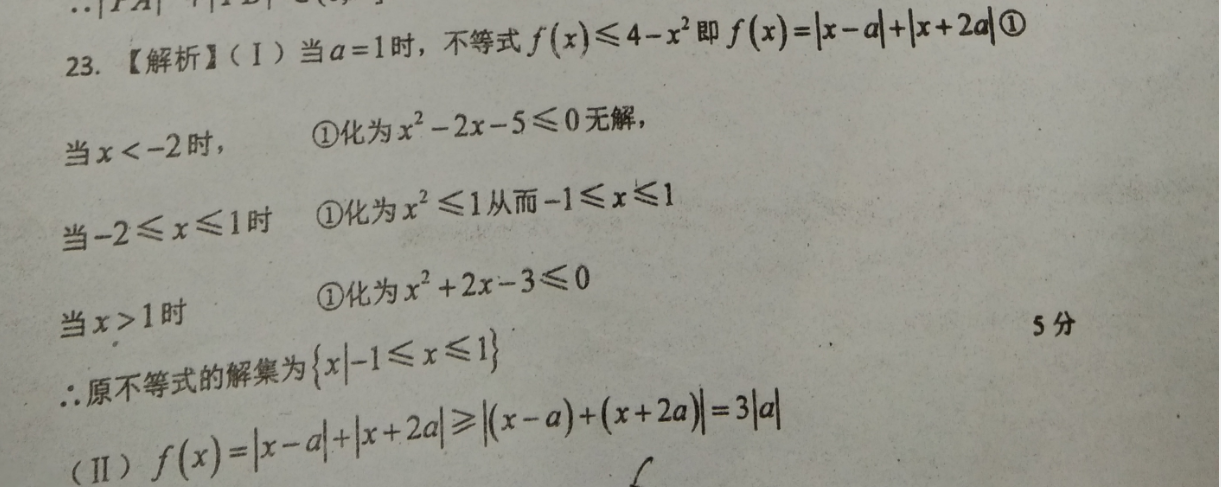 ∴|PA|
23. 【解析】(Ⅰ)当a=1时，不等式f(x)≤4-x²即f(x)=|x-a|+|x+2a|①
当x<-2时， ①化为x²-2x-5≤0无解，
当-2≤x≤1时 ①化为x²≤1从而-1≤x≤1
当x>1时 ①化为x²+2x-3≤0
5分
∴原不等式的解集为{x|-1≤x≤1}
(Ⅱ) f(x)=|x-a|+|x+2a|≥|(x-a)+(x+2a)|=3|a|